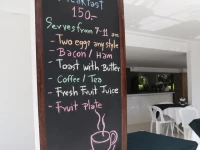 Breakfast
150.-
Serves from 7-11 am
- Two eggs any style
- Bacon / Ham
- Toast with Butter
- Coffee / Tea
- Fresh Fruit Juice
- Fruit Plate